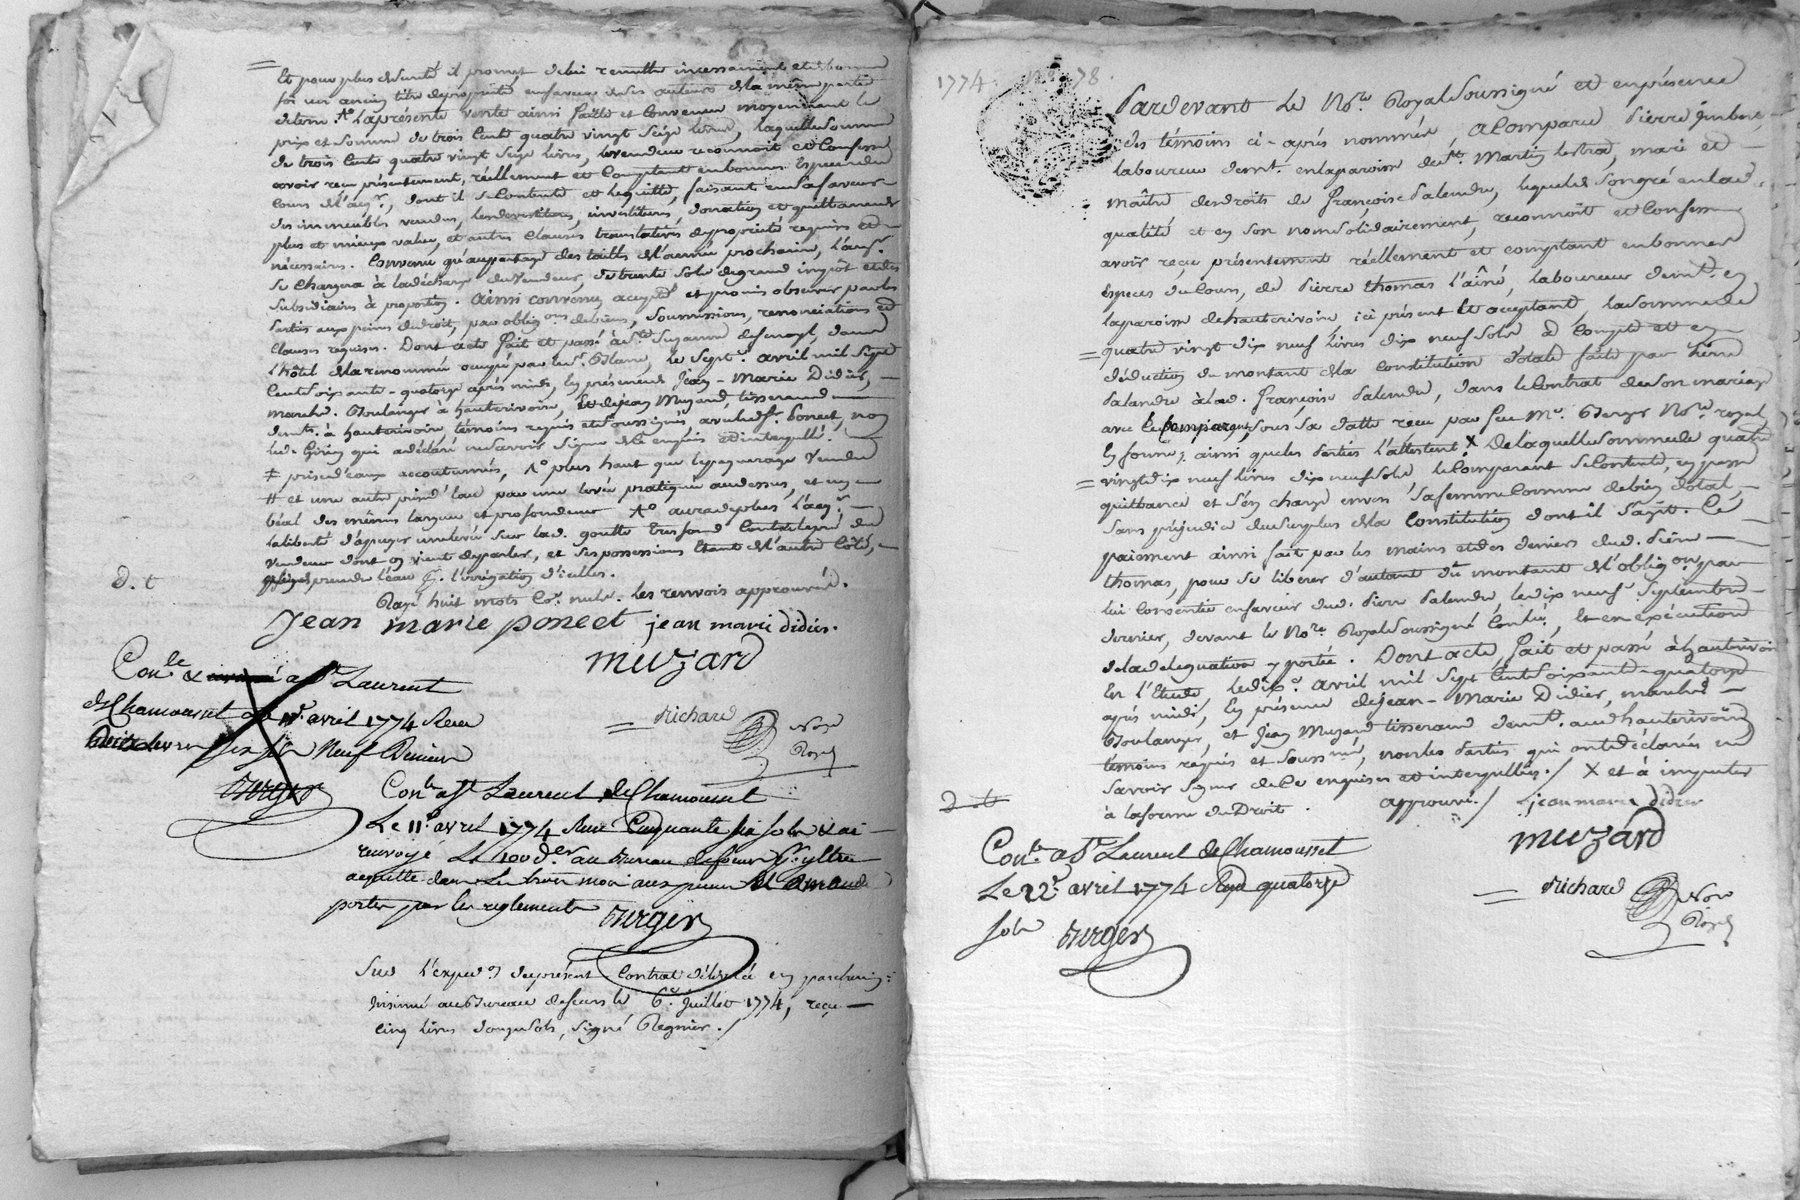 Et pour plus de sureté il promet de lui remettre incessamment et de bonne
foi un ancien titre de propriété en faveur de ses auteurs de la même partie
de terre. La présente vente ainsi faitte et convenue moyennant le
prix et somme de trois cents quatre vingt seize livres, laquelle somme
de trois cents quatre vingt seize livres, le vendeur reconnoit et confesse
avoir reçu présentement, réellement et comptant en bonnes Especes du
Cours de l'acqr., dont il se Contente et le quitte, faisant en sa faveur
des immeubles vendus, les devestitures, investitures, donation et quittance de
plus et mieux value, et autres clauses translatives de propriété requises et
nécessaires. Convenu qu'au partage des tailles de l'année prochaine, l'acqr.
se chargera à la décharge du Vendeur, de trente sols de grand impôt et des
subsidiaires à proportion. Ainsi convenu accepté et promis observer par les
Parties aux peines du droit, par oblig.ons de biens, soumissions, renonciations et
clauses requises. Dont acte fait et passé à Ste. Suzanne dans
l'hôtel de la renommée occupé par le Sr. Blanc, le sept.e avril mil sept
Cents soixante-quatorze après midi, En présence de Jean-Marie Didier,
marchd. Boulanger à hauterivoire, et de jean Muzard, tisserand
demt. à hauterivoire témoins requis et soussignés avec led. Sr. Poncet, non
led. Girin qui a déclaré ne savoir signer de ce enquis et interpellé.
‡ prises d'eaux accoutumées, plus haut que le pasquerage Vendu
# et une autre prise d'eau par une levée pratiquée au dessus, et un
béal des mêmes largeur et profondeur 4o. aura de plus l'acqr.
la liberté d'apuyer une levée sur lad. goutte tres fond Contre le pré du
vendeur dont on vient de parler, et ses possessions étant de l'autre côté,
prendre l'eau pr. l'irrigation d'icelles.
D. t
Rayé huit mots Coe. nuls. les renvois approuvés.
Jean marie poncet jean marie didier.
muzard
Conlé & à St. Laurent
de Chamousset le 11e. avril 1774 Reçu
six sols Neuf Deniers
Burgér
Richard Nore
Royal
Conlé a St Laurent de Chamousset
Le 11e. avril 1774 Reçu Cinquante six sols & ai
renvoyé Le 100 d.er au Bureau de feurs pr. y être
acquitté dans Les trois mois aux peines de L'amende
portées par les reglements
Burgér
Sur l'expedon. du présent Contrat délivré en parchemin
Insinué au Bureau de feurs le 6e. juillet 1774, reçu
cinq livres douze sols, signé Regnier./
1774. No. 78.
Pardevant Le Nore. Royal soussigné et en présence
des témoins ci-après nommés, a Comparu Pierre Imbert,
laboureur demt. en la paroisse de St. Martin lestrad, mari et
maître des droits de Françoise Palandre, lequel de son gré en lad.
qualité et en son nom solidairement, reconnoit et Confesse
avoir reçu présentement réellement et comptant en bonnes
Especes du Cours, de Pierre thomas l'aîné, laboureur demt. en
la paroisse de hauterivoire ici présent et acceptant, la somme de
quatre vingt dix neuf livres dix neuf sols à Compte et en
déduction du montant de la Constitution dotale faite par Pierre
Palandre à lad. Françoise Palandre, dans le Contrat de son mariage
avec le Comparant, sous sa datte reçu par feu Me. Berger Nore. royal
En fourne, ainsi que les Parties l'attestent X De laquelle somme de quatre
vingt dix neuf livres dix neuf sols le Comparant se Contente, en passe
quittance et s'en charge envers sa femme Comme de bien dotal,
sans préjudice du surplus de la Constitution dont il s'agit. Ce
paiement ainsi fait par les mains et des deniers dud. Pierre
thomas, pour se libérer d'autant du montant de l'oblig.on par
lui Consentie en faveur dud. Pierre Palandre, le dix neuf Septembre
dernier, devant le Nore. Royal soussigné Conlée, Et en exécution
de la délégation y portée. Dont acte fait et passé à hauterivoire
En l'Etude, le dixe. avril mil sept Cents soixante-quatorze
après midi, En présence de jean-Marie Didier, marchd.
Boulanger, et Jean Muzard tisserand demt. aud. hauterivoire
témoins requis et soussnés, non les Parties qui ont déclarés ne
savoir signer de Ce enquises et interpellées./ X et à imputer
à la forme du Droit. approuvé./ jean marie didier
D. t
muzard
Conlé a St. Laurent de Chamousset
Le 22e. avril 1774 Reçu quatorze
sols Burgér
Richard Nore
Royal